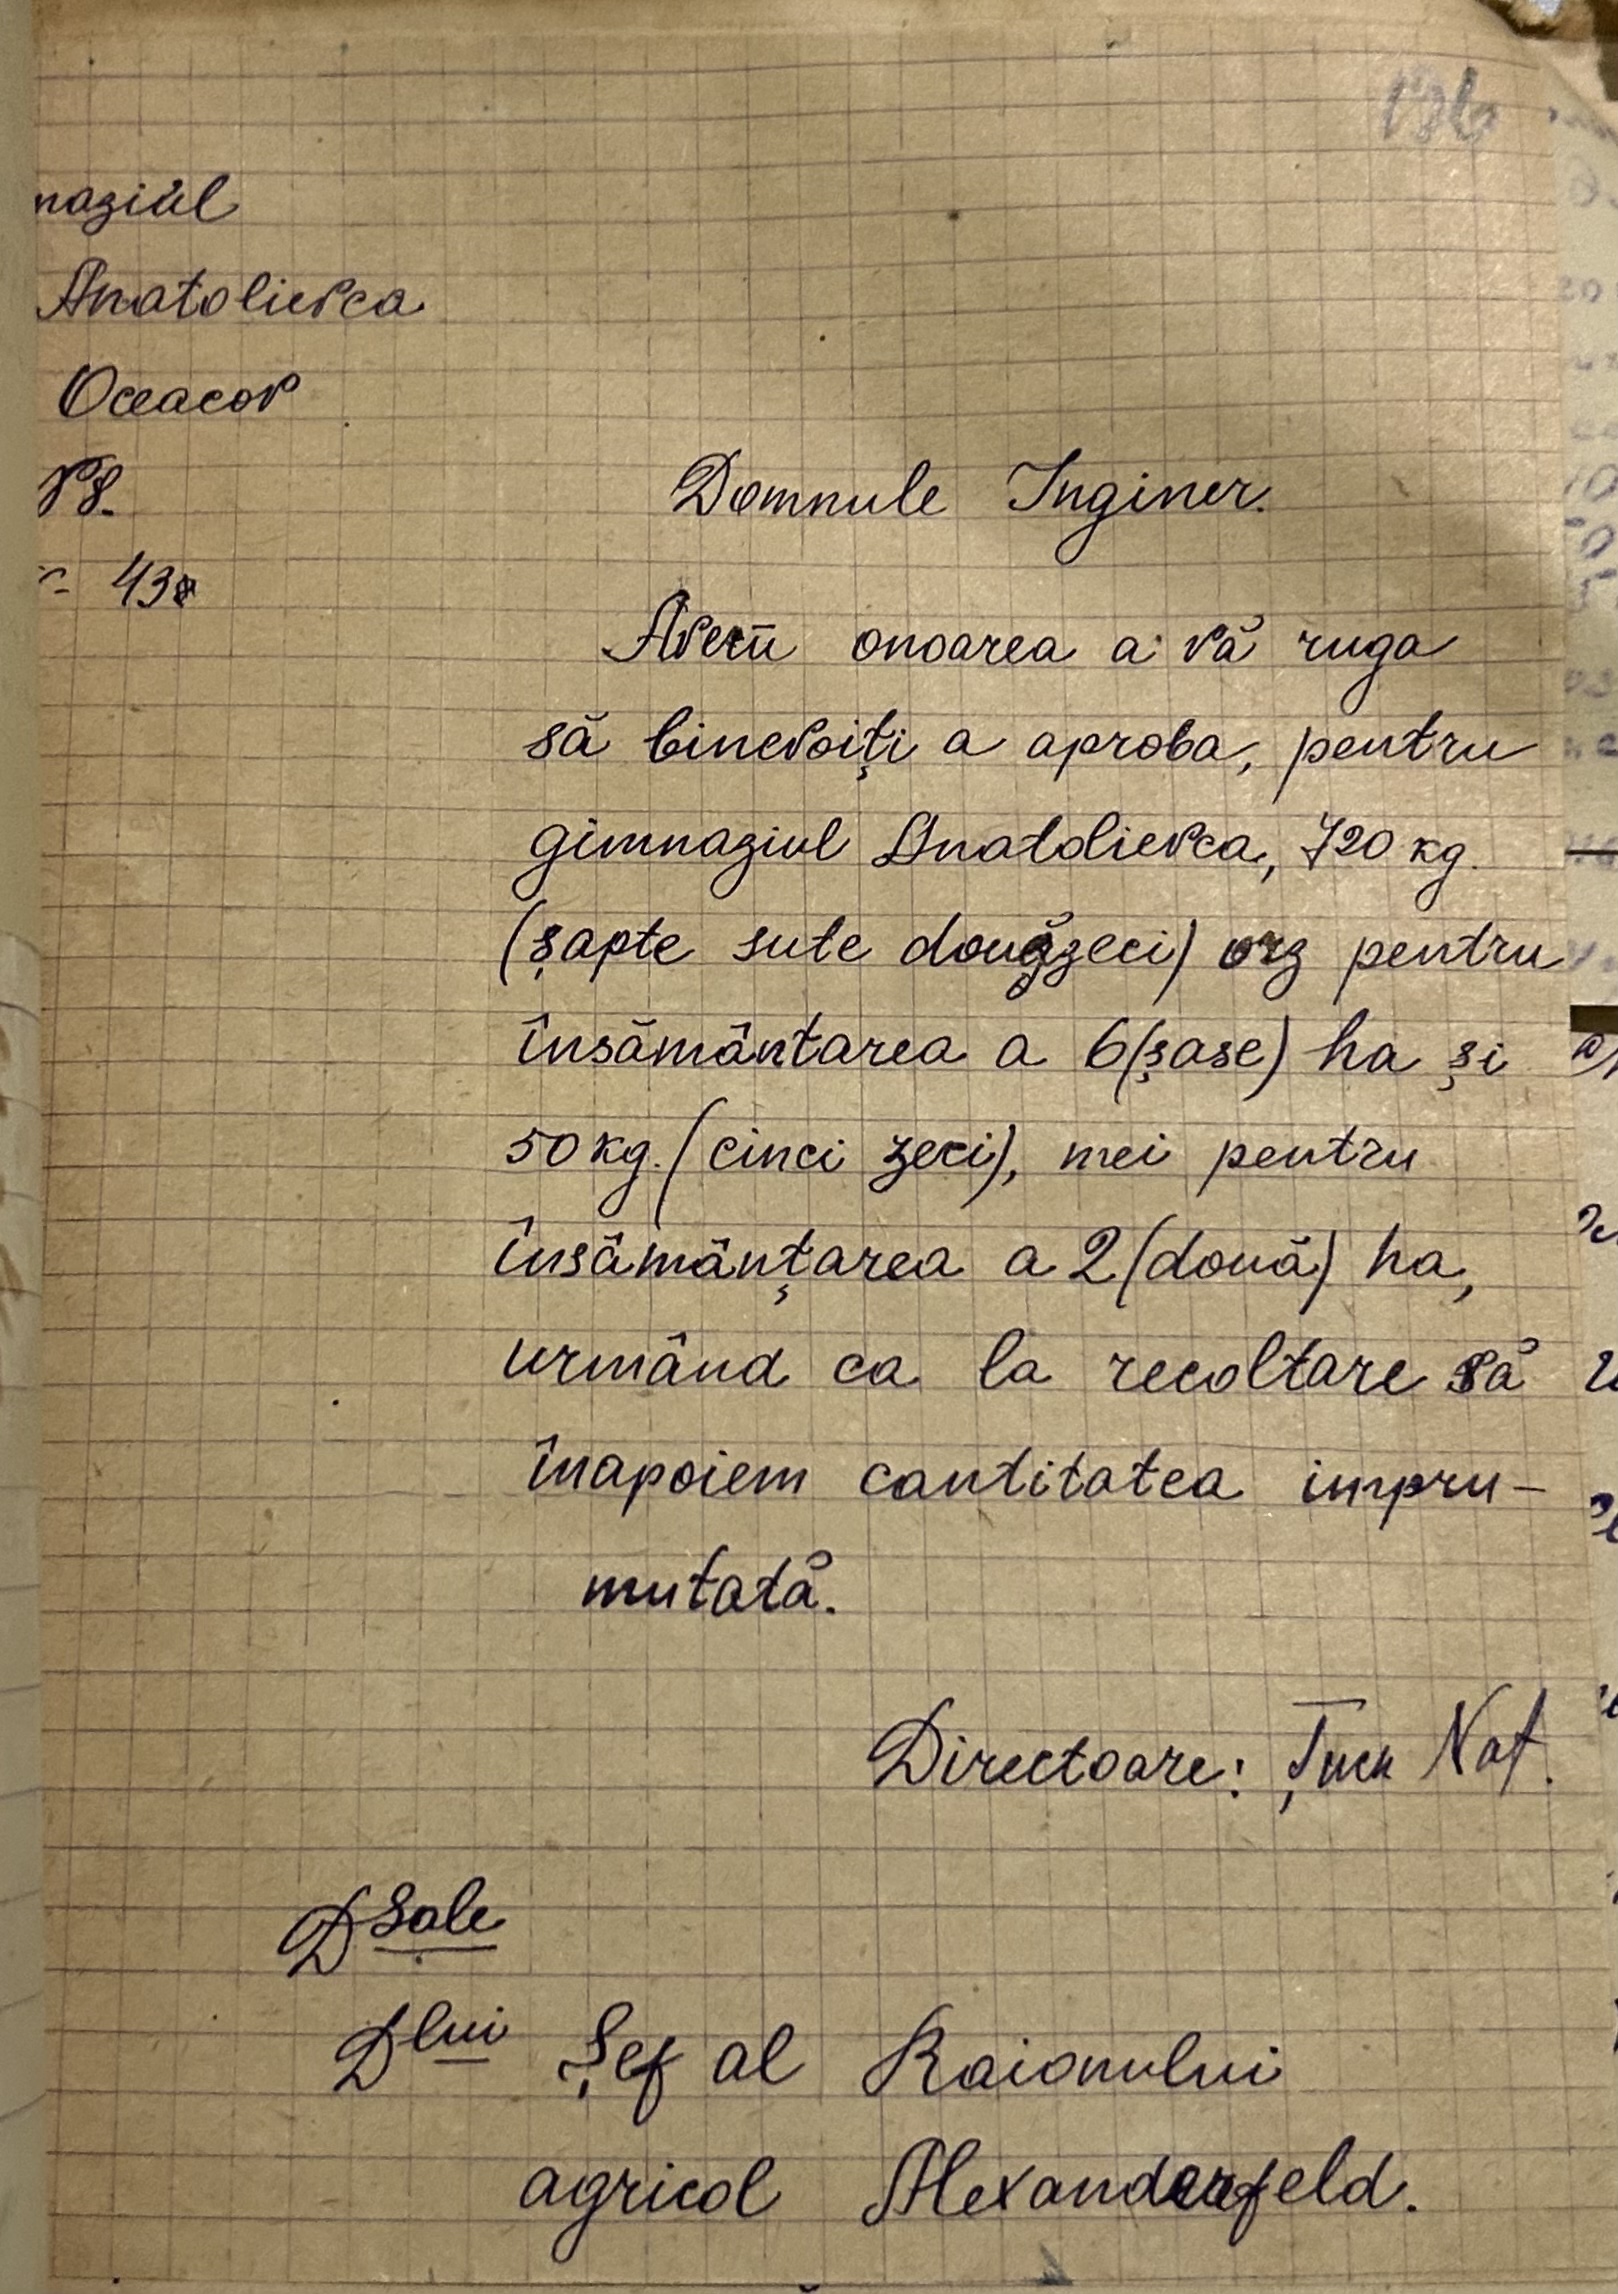 136
naziul
Anatolievca
Oceacov
Domnule Inginer.
Avem onoarea a vă ruga
să binevoiți a aproba, pentru
gimnaziul Anatolievca, 720 kg.
(șapte sute douăzeci) orz pentru
însământarea a 6 (șase) ha și
50 kg. (cinci zeci), mei pentru
însămânțarea a 2 (două) ha,
urmând ca la recoltare să
înapoiem cantitatea impru-
mutată.
Directoare: Nat.
Dsale
Dlui Șef al Raionului
agricol Alexanderfeld.